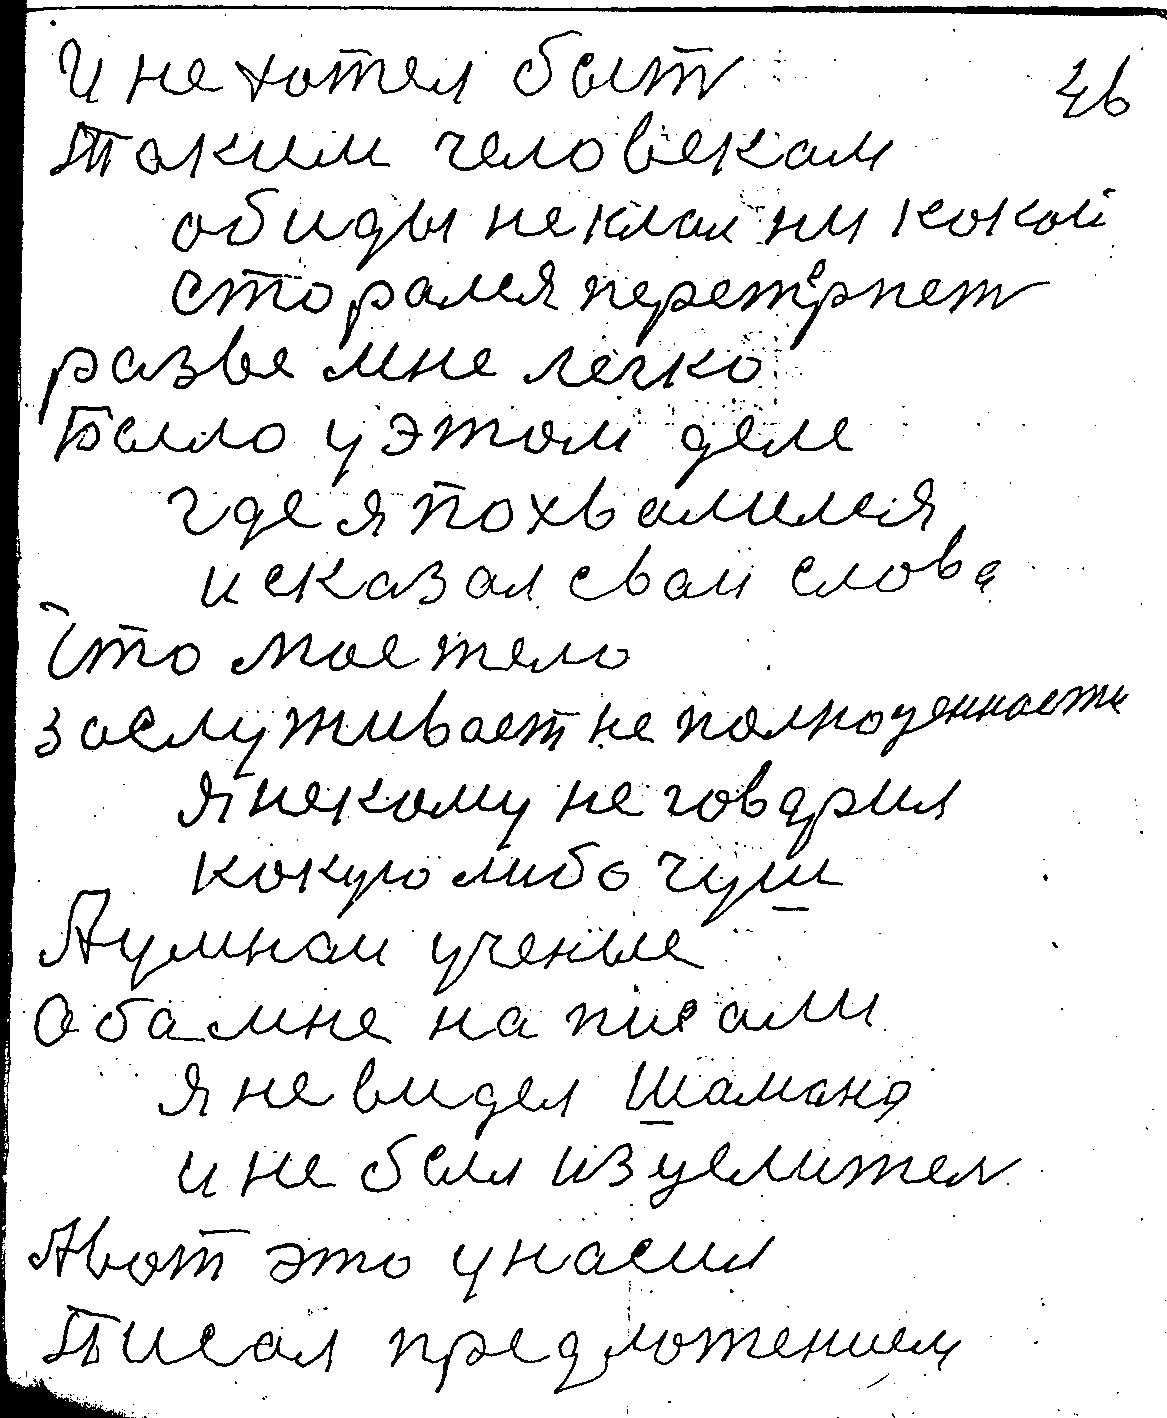 И не хотел быт
46
Таким человекам
обиды не клал ни кокой
сторался перетерпет
разве мне легко
Было у этом деле
где я похвалился
и сказал сваи слова
Что мое тело
заслуживает не полноценности
я некому не говорил
кокую либо чуш
А умнаи ученые
Оба мне на писали
я не видел шамана
и не был изцелител
А вот это уносил
Писал предложением